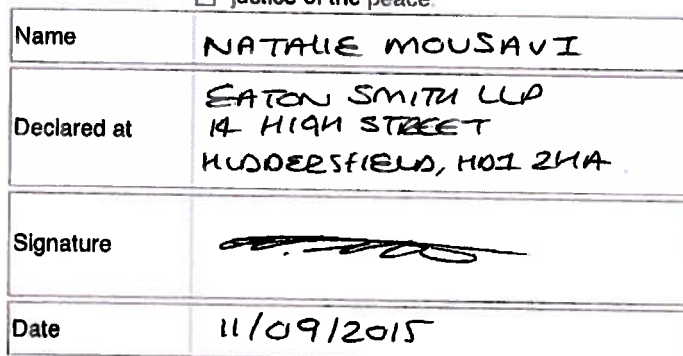 justice of the peace
Name NATALIE MOUSAVI
Declared at EATON SMITH LLP
14 HIGH STREET
HUDDERSFIELD, HD1 2HA
Signature
Date 11/09/2015